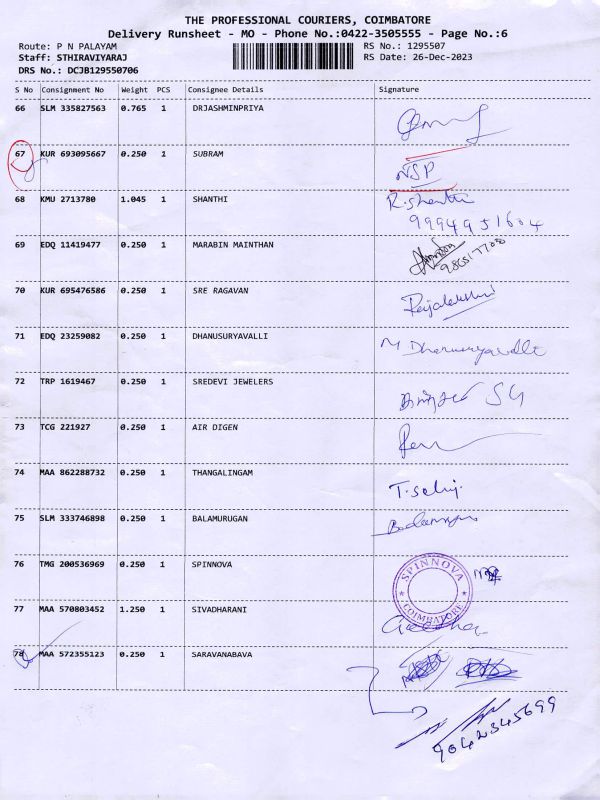 THE PROFESSIONAL COURIERS, COIMBATORE
Delivery Runsheet - MO - Phone No.:0422-3505555 - Page No.:6
Route: P N PALAYAM RS No.: 1295507
Staff: STHIRAVIYARAJ RS Date: 26-Dec-2023
DRS No.: DCJB129550706
S No Consignment No Weight PCS Consignee Details Signature
66 SLM 335827563 0.765 1 DRJASHMINPRIYA
67 KUR 693095667 0.250 1 SUBRAM NSP
68 KMU 2713780 1.045 1 SHANTHI R. Shanthi
9994951604
69 EDQ 11419477 0.250 1 MARABIN MAINTHAN
70 KUR 695476586 0.250 1 SRE RAGAVAN Rajalakshmi
71 EDQ 23259082 0.250 1 DHANUSURYAVALLI M Dhanusuryavalli
72 TRP 1619467 0.250 1 SREDEVI JEWELERS
73 TCG 221927 0.250 1 AIR DIGEN
74 MAA 862288732 0.250 1 THANGALINGAM T. Selvi
75 SLM 333746898 0.250 1 BALAMURUGAN
76 TMG 200536969 0.250 1 SPINNOVA SPINNOVA COIMBATORE
77 MAA 570803452 1.250 1 SIVADHARANI
78 MAA 572355123 0.250 1 SARAVANABAVA
9042345699